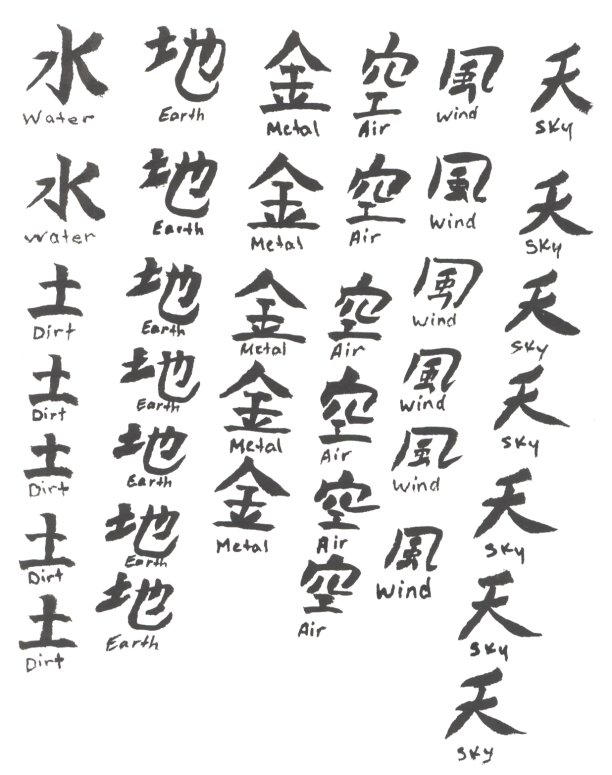 水 地 金 空 風 天
Water Earth Metal Air wind SKy
水 地 金 空 風 天
Water Earth Metal Air Wind SKy
土 地 金 空 風 天
Dirt Earth Metal Air wind SKy
土 地 金 空 風 天
Dirt Earth Metal Air Wind SKy
土 地 金 空 風 天
Dirt Earth Metal Air Wind SKy
土 地 空 風 天
Dirt Earth Air Wind SKy
土 地 天
Dirt Earth SKy